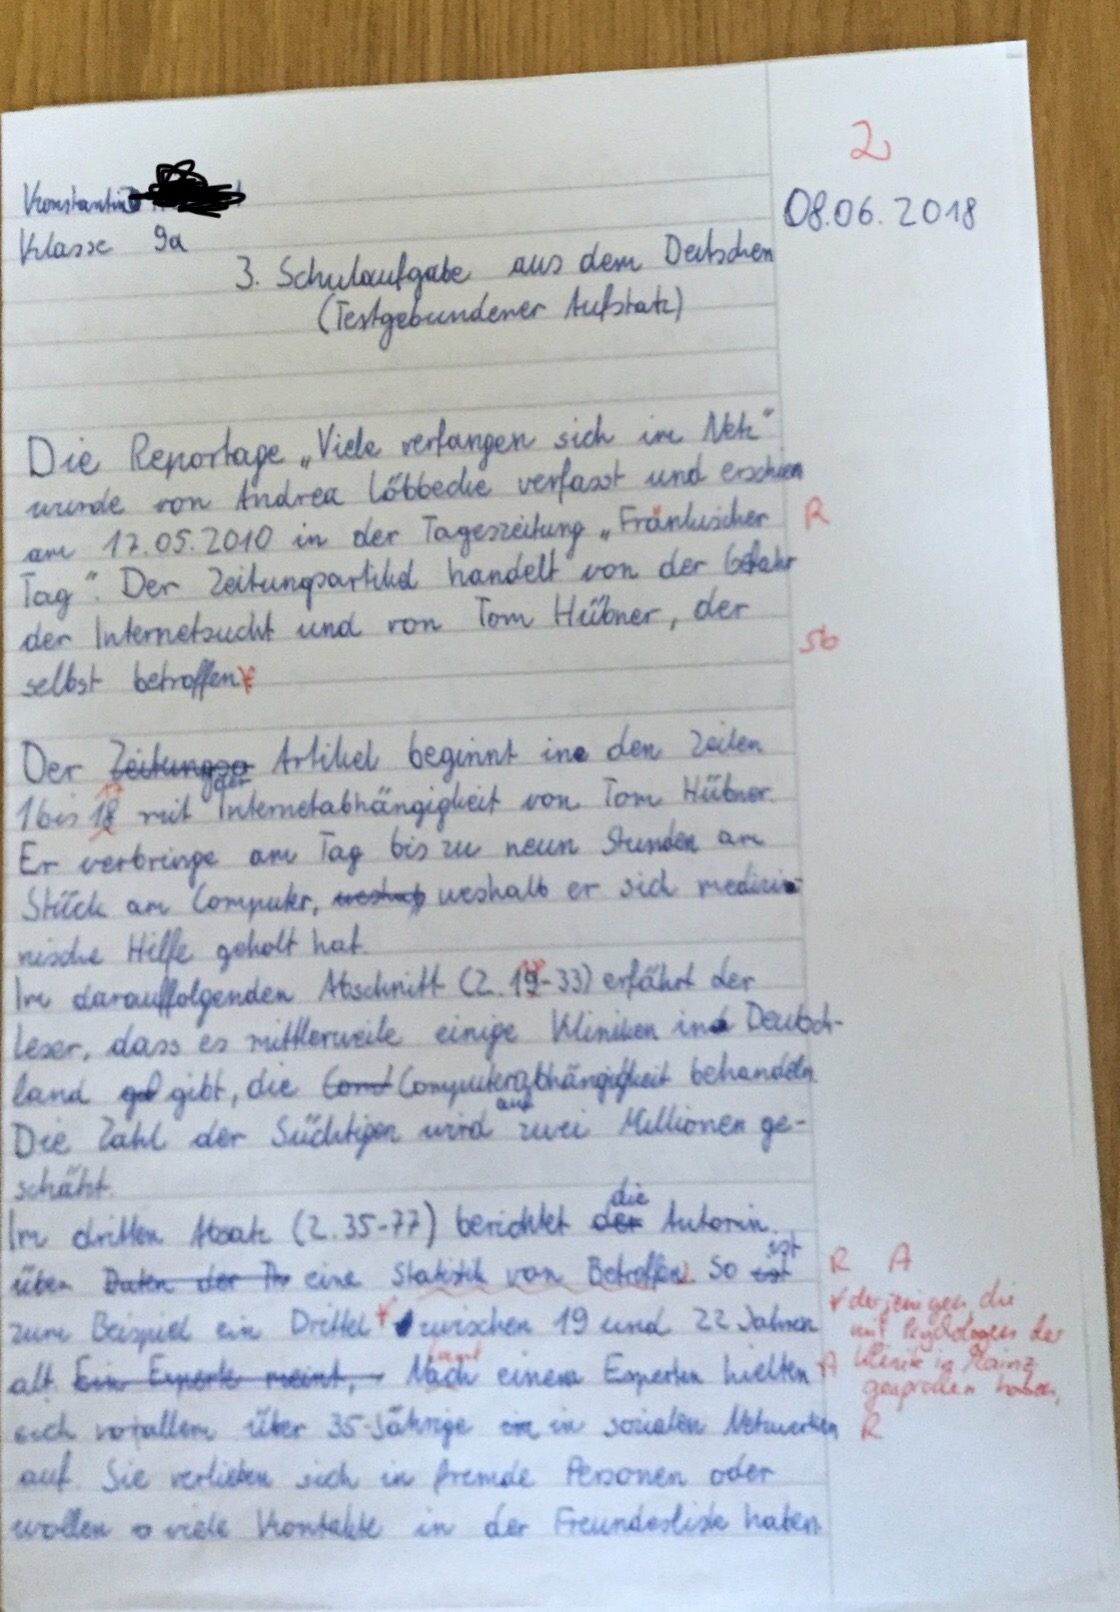 2
08.06.2018
Konstantin
Klasse 9a
3. Schulaufgabe aus dem Deutschen
(Textgebundener Aufsatz)
Die Reportage „Viele verfangen sich im Netz"
wurde von Andrea Löbbecke verfasst und erschien
am 17.05.2010 in der Tageszeitung „Fränkischer
R
Tag". Der Zeitungsartikel handelt von der Gefahr
der Internetsucht und von Tom Hübner, der
Sb
selbst betroffen
Der Zeitungsa Artikel beginnt in den Zeilen
1 bis 18 mit der Internetabhängigkeit von Tom Hübner.
Er verbringe am Tag bis zu neun Stunden am
Stück am Computer, weshalb er sich medizi-
nische Hilfe geholt hat.
Im darauffolgenden Abschnitt (Z. 19-33) erfährt der
Leser, dass es mittlerweile einige Kliniken in Deutsch-
land gibt, die Computerabhängigkeit behandeln.
Die Zahl der Süchtigen wird auf zwei Millionen ge-
schätzt.
Im dritten Absatz (Z. 35-77) berichtet die Autorin
über Daten der eine Statistik von Betroffen. So ist
R A
zum Beispiel ein Drittel zwischen 19 und 22 Jahren
derjenigen, die
mit Psychologen der
alt. Ein Experte meint, Nach laut einem Experten hielten
A Klinik in Mainz
gesprochen haben,
sich vorallem über 35-Jährige in sozialen Netzwerken
R
auf. Sie verlieben sich in fremde Personen oder
wollen viele Kontakte in der Freundesliste haben.